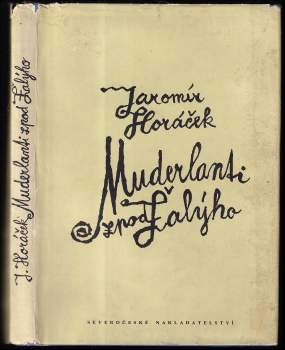 J. Horáček: Muderlanti zpod Žalýho
Jaromír
Horáček
Muderlanti
zpod
Žalýho
SEVEROČESKÉ NAKLADATELSTVÍ